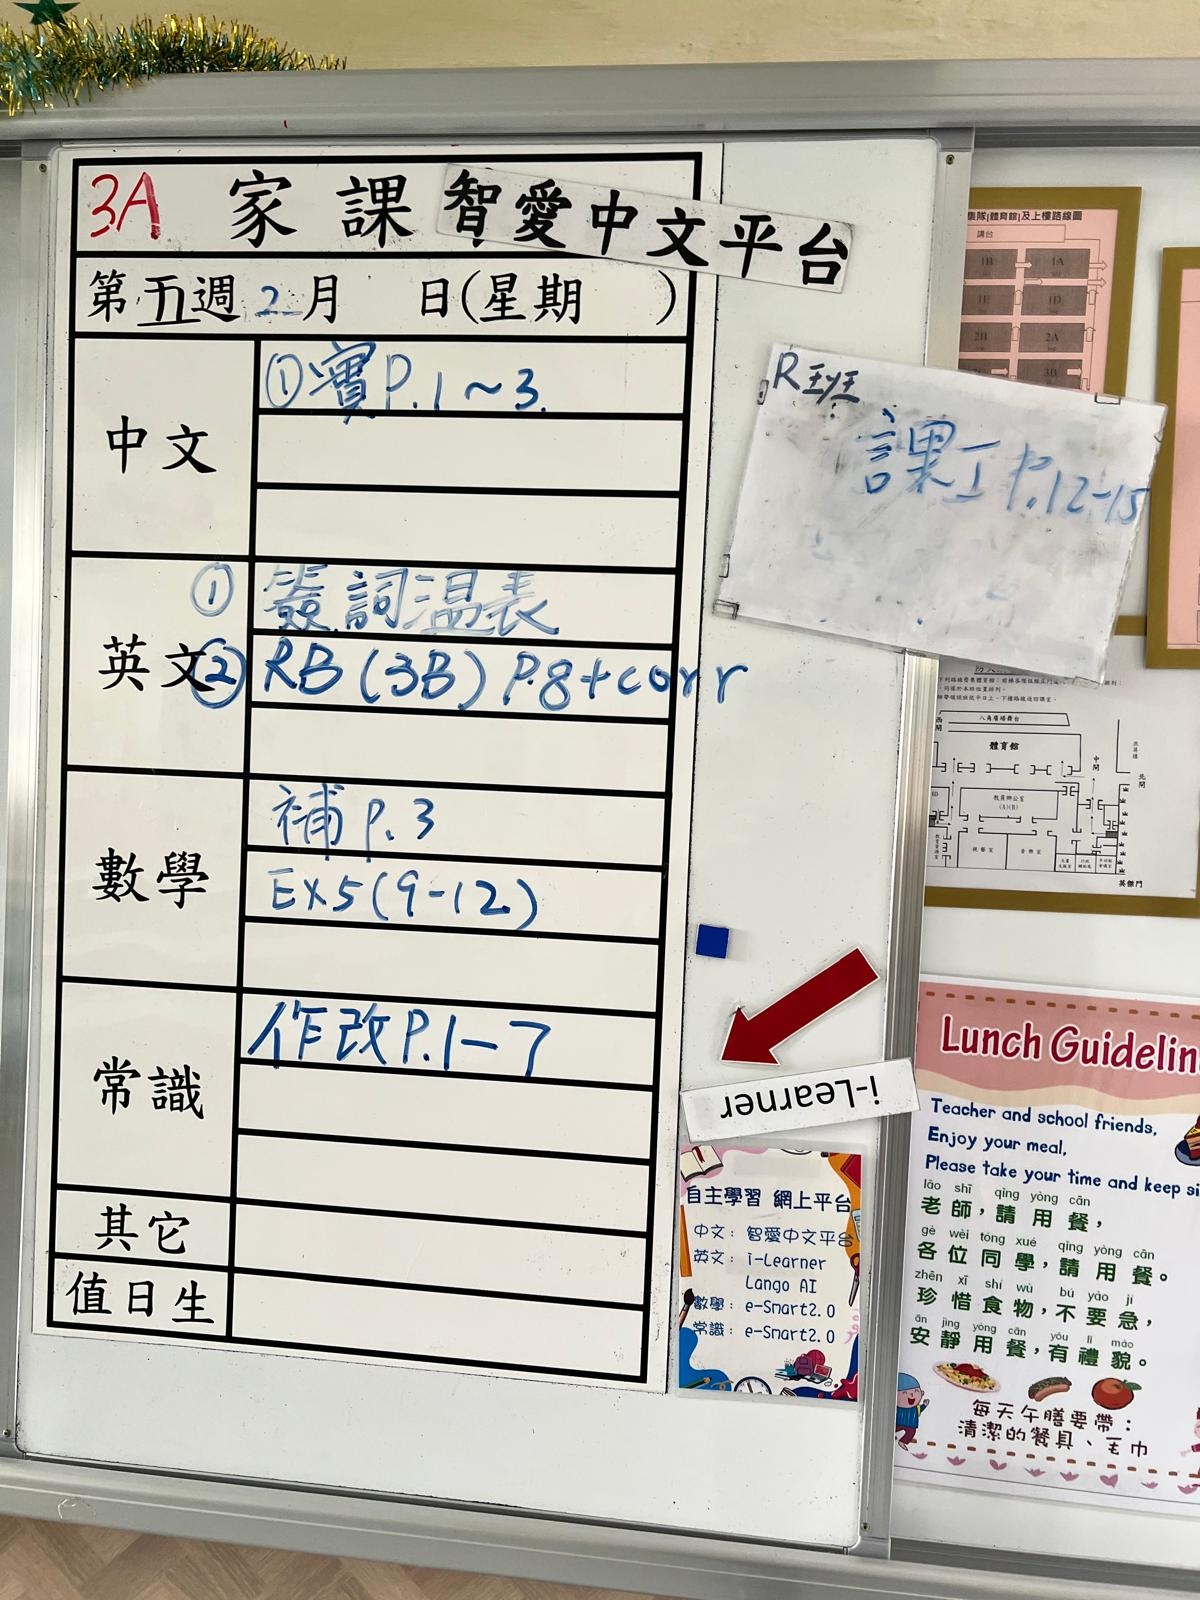 3A 家課
智愛中文平台
第五週2月 日(星期 )
中文
①實P.1~3.
英文
①簽詞温表
②RB(3B) P.8+corr
數學
補P.3
EX5(9-12)
常識
作改P.1-7
其它
值日生
R班
課工P.12-15
i-Learner
自主學習 網上平台
中文：智愛中文平台
英文：i-Learner
Lango AI
數學：e-Smart2.0
常識：e-Smart2.0
集隊(體育館)及上樓路線圖
講台
1B 1A
1E 1D
2B 2A
3B
八角廣場舞台
體育館
教員辦公室
(A)(B)
視藝室
音樂室
西閘
中閘
北閘
英傑門
Lunch Guidelin
Teacher and school friends,
Enjoy your meal,
Please take your time and keep si
lǎo shī qǐng yòng cān
老師，請用餐，
gè wèi tóng xué qǐng yòng cān
各位同學，請用餐。
zhēn xī shí wù bú yào jí
珍惜食物，不要急，
ān jìng yòng cān yǒu lǐ mào
安靜用餐，有禮貌。
每天午膳要帶：
清潔的餐具、毛巾